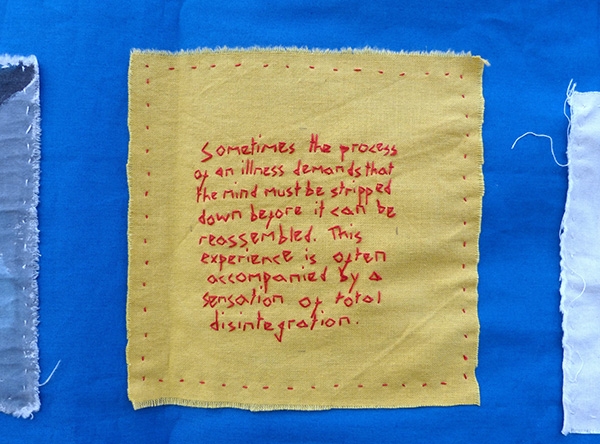 Sometimes the process
of an illness demands that
the mind must be stripped
down before it can be
reassembled. This
experience is often
accompanied by a
sensation of total
disintegration.